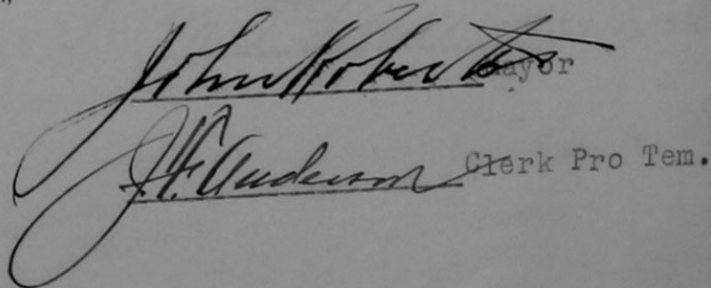 John Roberts Mayor
J.F. Anderson Clerk Pro Tem.